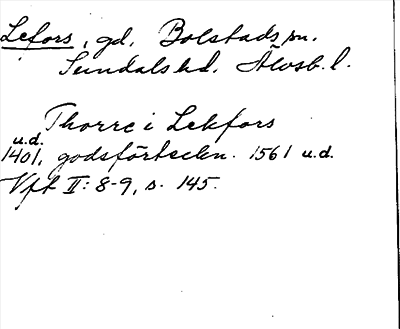 Lefors, gd, Bolstads sn.
Sundals hd. Älvsb. l.
Thorre i Lekfors
u.d.
1401, godsförteckn. 1561 u.d.
Vft II: 8-9, s. 145.